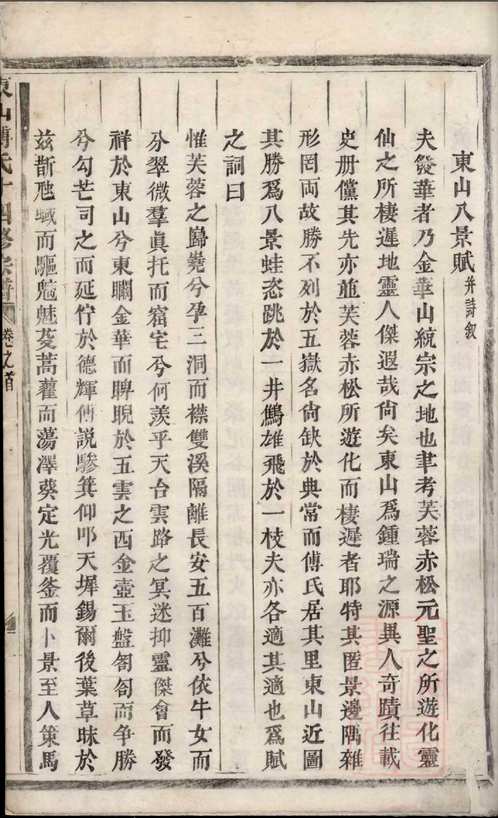 東山八景賦并詩叙
夫發華者乃金華山統宗之地也聿考芙蓉赤松元聖之所遊化靈
仙之所棲遲地靈人傑遐哉尙矣東山爲鍾瑞之源異人奇蹟往載
史册儻其先亦葅芙蓉赤松所遊化而棲遲者耶特其匿景邊隅雜
形罔両故勝不列於五嶽名尙缺於典常而傅氏居其里東山近圖
其勝爲八景蛙恣跳於一井鷦雄飛於一枝夫亦各適其適也爲賦
之詞曰
惟芙蓉之巋嶢兮孕三洞而襟雙溪隔離長安五百灘兮依牛女而
分翠微羣眞托而窟宅兮何羨乎天台雲路之冥迷抑靈傑會而發
祥於東山兮東矙金華而睥睨於五雲之西金壺玉盤匒匌而争勝
兮勾芒司之而延佇於德輝傅説騎箕仰叩天墀錫爾後葉草昧於
兹斮虺蜮而驅魑魅芟蒿藋而蕩澤葵定光覆釜而卜景至人策馬
東山傅氏十四修宗譜 卷之首